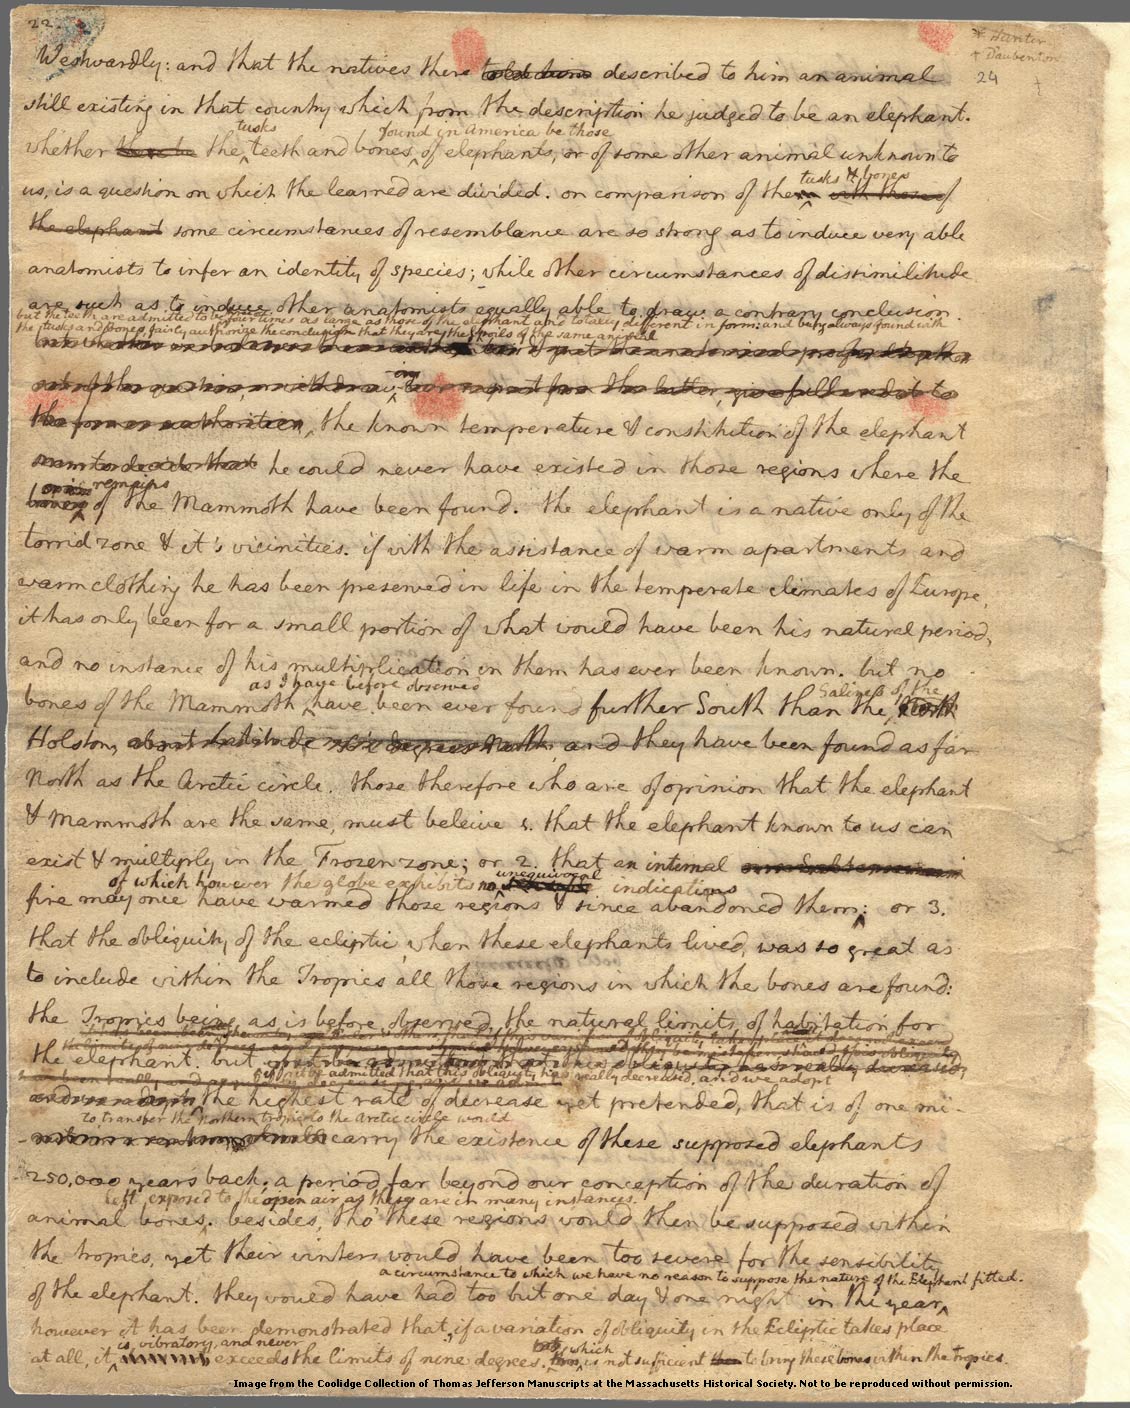 22.
* Hunter
* Daubenton
24
Westwardly: and that the natives there told him described to him an animal
still existing in that country which from the description he judged to be an elephant.
tusks found in America be those
whether these be the teeth and bones of elephants, or of some other animal unknown to
tusks & bones
us, is a question on which the learned are divided. on comparison of them with those of
the elephant some circumstances of resemblance are so strong as to induce very able
anatomists to infer an identity of species; while other circumstances of dissimilitude
are such as to induce other anatomists equally able to draw a contrary conclusion.
but the teeth are admitted to be four times as large as those of the elephant and totally different in form: and being always found with
the tusks and bones fairly authorise the conclusion that they are the spoils of the same animal
ing
the former authorities, the known temperature & constitution of the elephant
seem to decide that he could never have existed in those regions where the
remains
bones of the Mammoth have been found. the elephant is a native only of the
torrid zone & it's vicinities. if with the assistance of warm apartments and
warm clothing he has been preserved in life in the temperate climates of Europe,
it has only been for a small portion of what would have been his natural period,
and no instance of his multiplication in them has ever been known. but no
as I have before observed Salines of the
bones of the Mammoth have been ever found further South than the North
Holston, about latitude degrees North, and they have been found as far
North as the Arctic circle. those therefore who are of opinion that the elephant
& Mammoth are the same, must beleive 1. that the elephant known to us can
exist & multiply in the Frozen zone; or 2. that an internal
of which however the globe exhibits no unequivocal indications
fire may once have warmed those regions & since abandoned them; or 3.
that the obliquity of the ecliptic, when these elephants lived, was so great as
to include within the Tropics all those regions in which the bones are found:
the Tropics being, as is before observed, the natural limits of habitation for
the elephant. but
if it be admitted that this obliquity has really decreased, and we adopt
the highest rate of decrease yet pretended, that is of one mi-
to transfer the Northern tropic to the Arctic circle would
carry the existence of these supposed elephants
250,000 years back; a period far beyond our conception of the duration of
left exposed to the open air as these are in many instances.
animal bones. besides, tho' these regions would then be supposed within
the tropics, yet their winters would have been too severe for the sensibility
a circumstance to which we have no reason to suppose the nature of the Elephant fitted.
of the elephant. they would have had too but one day & one night in the year,
however it has been demonstrated that, if a variation of obliquity in the Ecliptic takes place
is vibratory, and never which
at all, it exceeds the limits of nine degrees. is not sufficient to bring these bones within the tropics.
Image from the Coolidge Collection of Thomas Jefferson Manuscripts at the Massachusetts Historical Society. Not to be reproduced without permission.